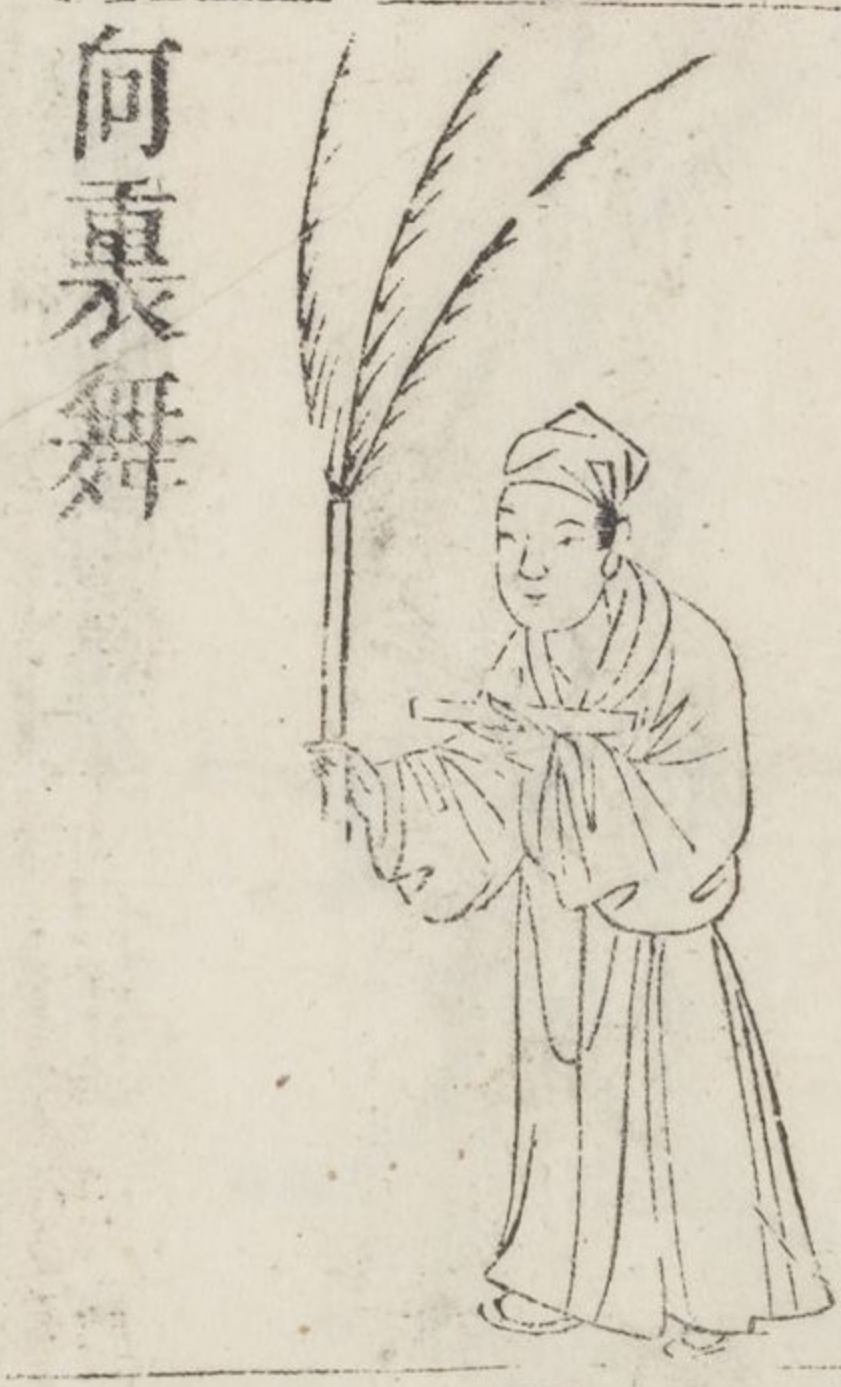 向裏舞